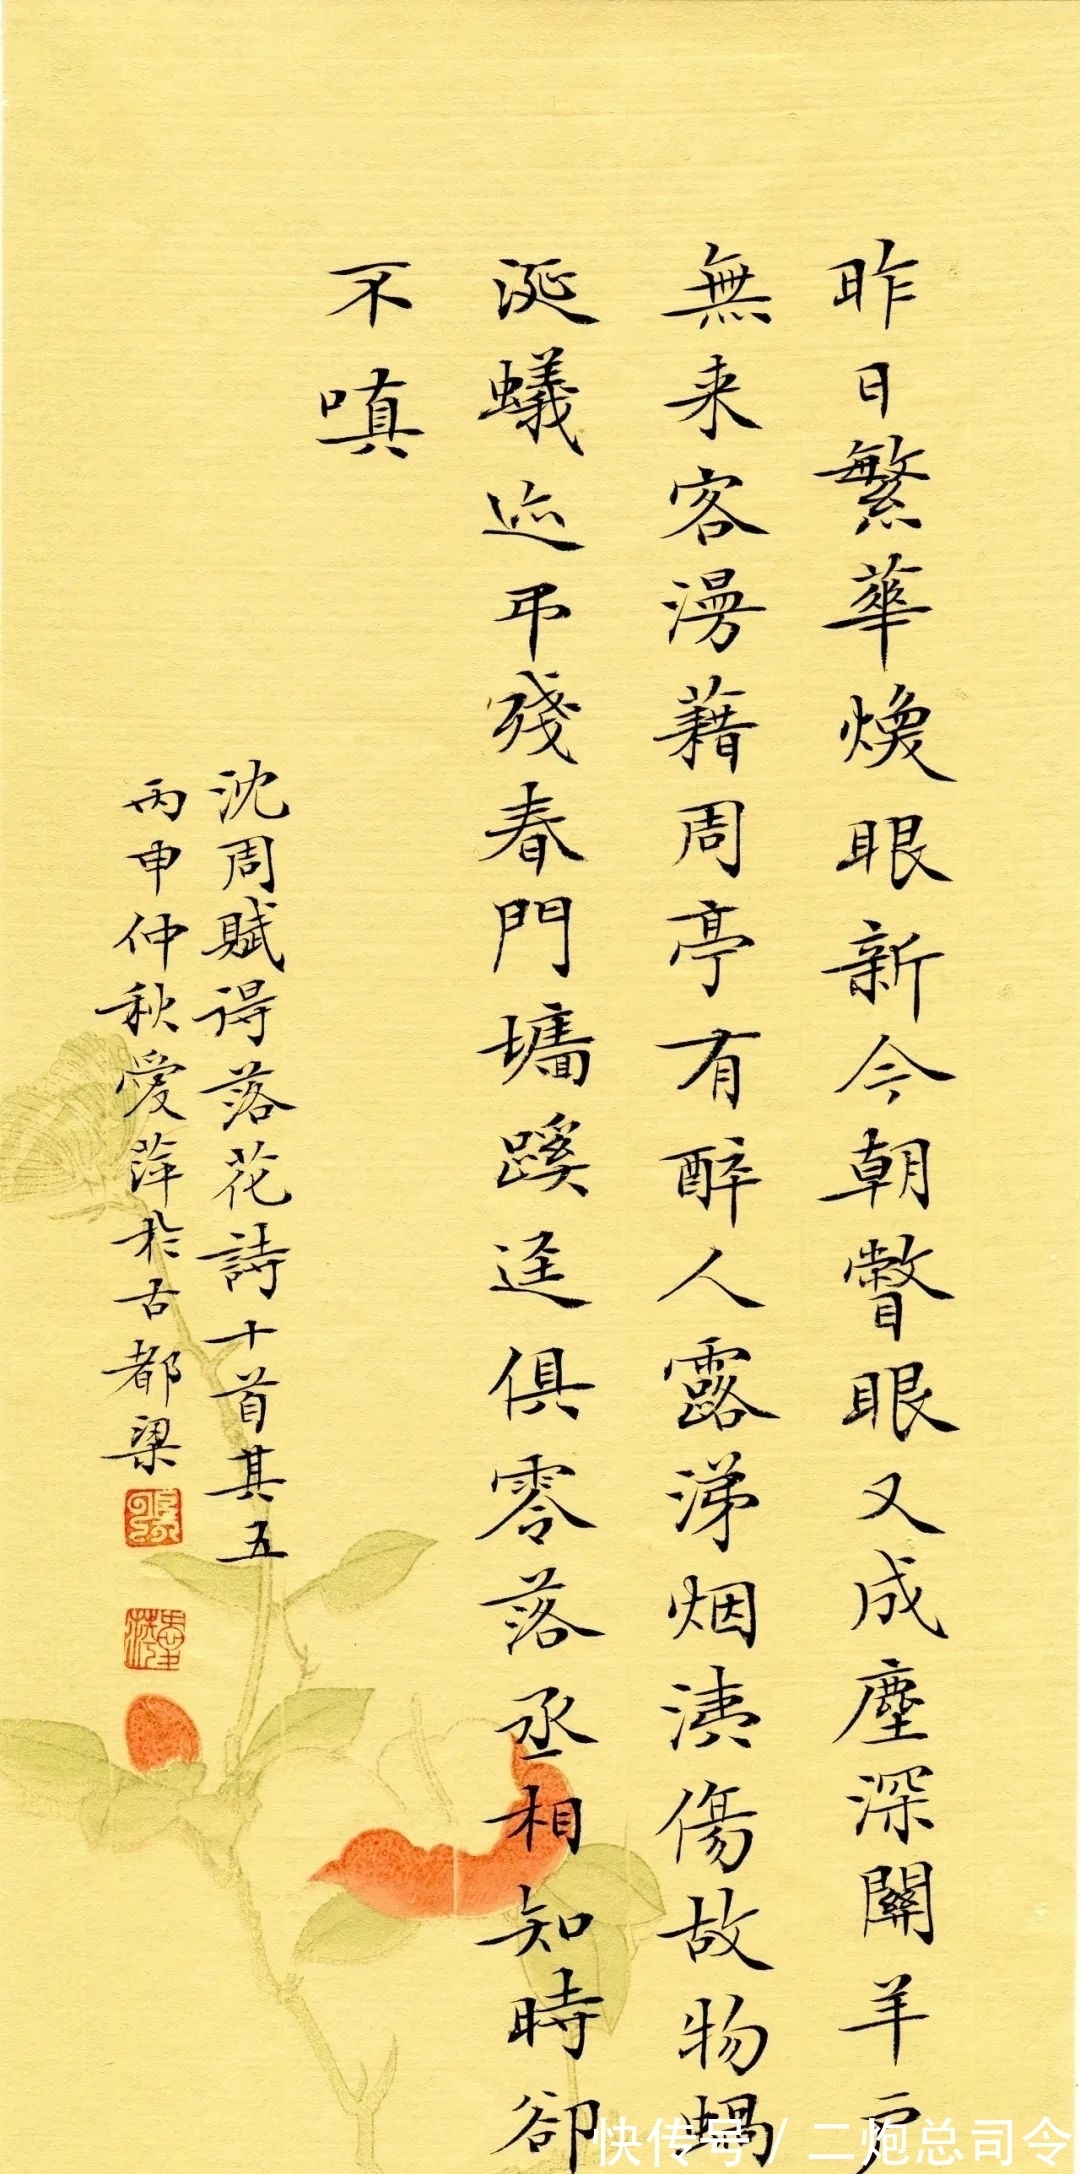 昨日繁華煥眼新今朝瞥眼又成塵深關羊户
無来客漫藉周亭有醉人露涕烟洟傷故物蝸
涎蟻迹弔殘春門墻蹊迳俱零落丞相知時卻
不嗔
沈周賦得落花詩十首其五
丙申仲秋愛萍於古都梁
快传号 / 二炮总司令